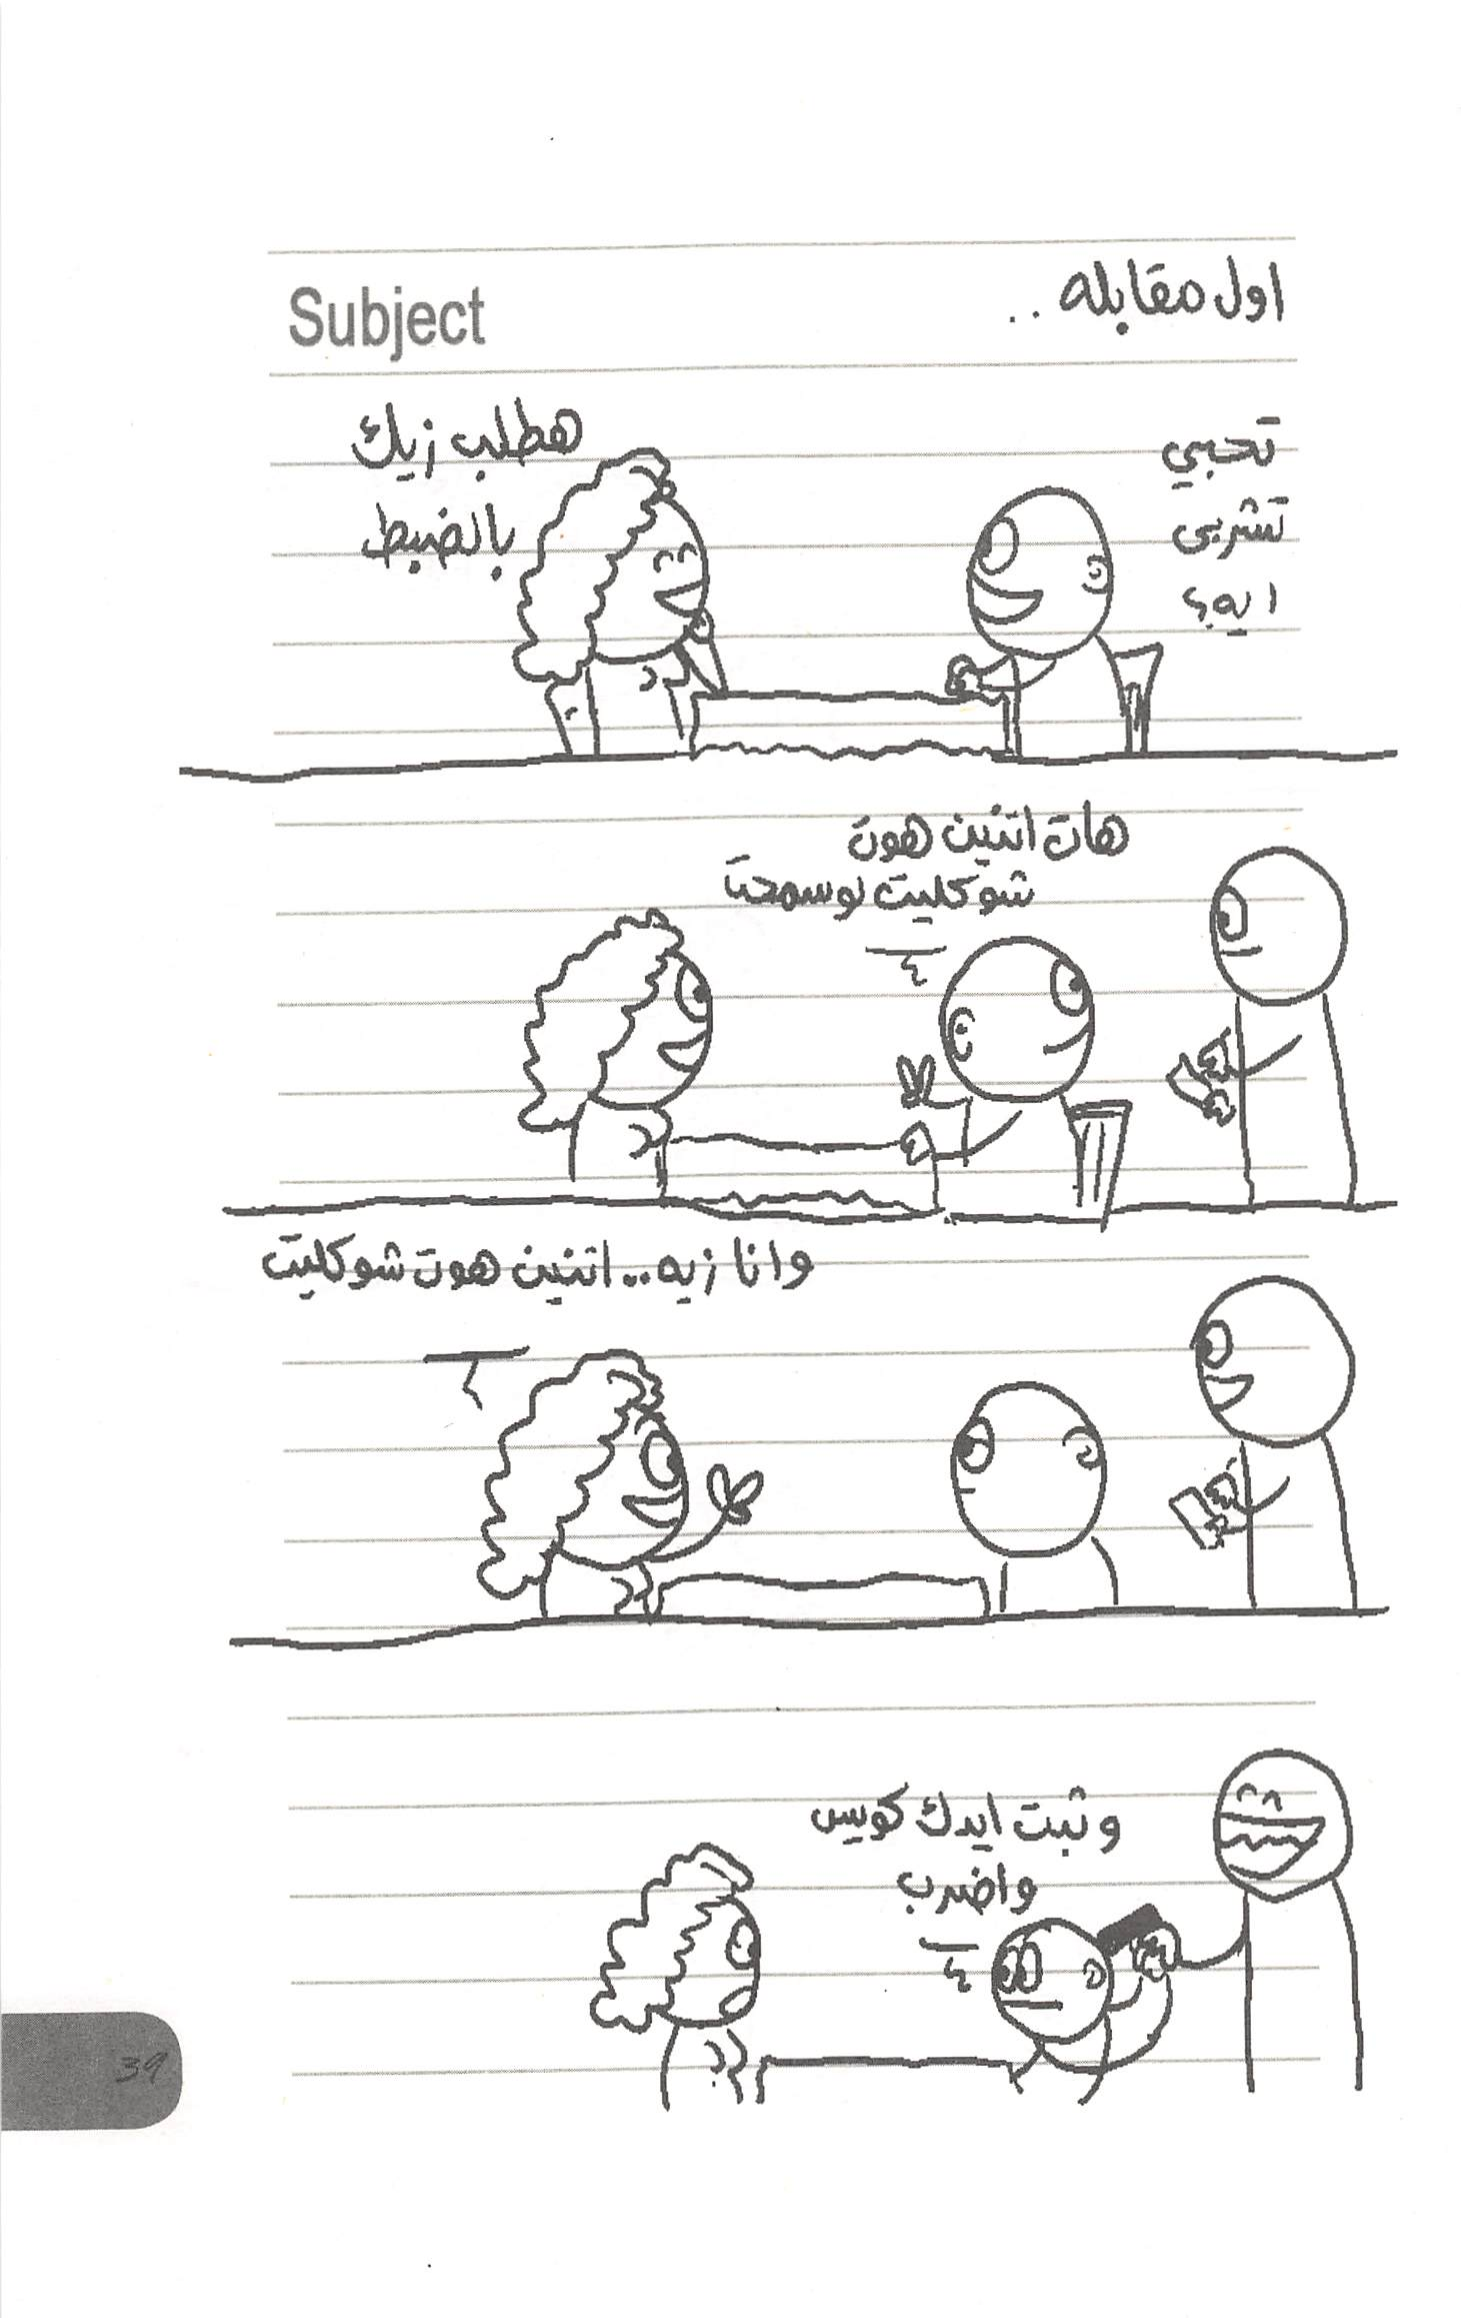 Subject
اول مقابله ..
تحبي
تشربي
ايه؟
هطلب زيك
بالضبط
هات اتنين هوت
شوكليت لو سمحت
وانا زيه .. اتنين هوت شوكليت
وثبت ايدك كويس
واضرب
39